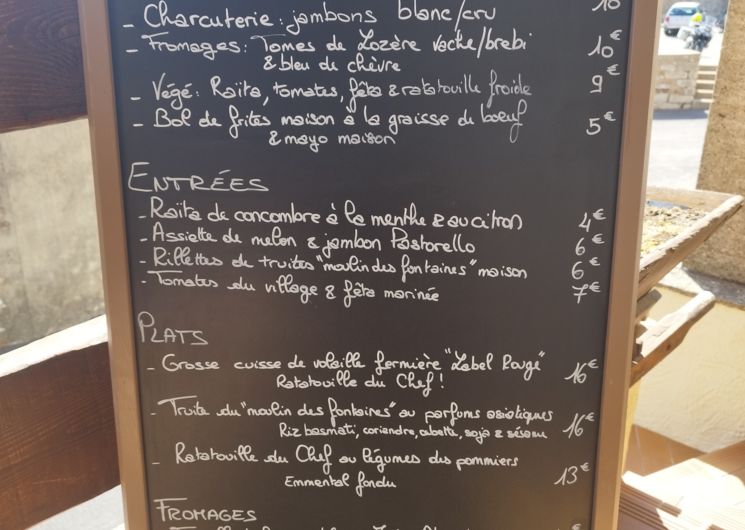 - Charcuterie: jambons blanc/cru 10
- Fromages: Tomes de Lozère vache/brebi 10€
& bleu de chèvre
- Végé: Raïta, tomates, féta & ratatouille froide 9€
- Bol de frites maison à la graisse de boeuf 5€
& mayo maison
ENTRÉES
- Raïta de concombre à la menthe & au citron 4€
- Assiette de melon & jambon Pastorello 6€
- Rillettes de truites "moulin des fontaines" maison 6€
- Tomates du village & féta marinée 7€
PLATS
- Grosse cuisse de volaille fermière "Label Rouge" 16€
Ratatouille du Chef!
- Truite du "moulin des fontaines" au parfums asiatiques 16€
Riz basmati, coriandre, cébette, soja & sésame
- Ratatouille du Chef au légumes des pommiers 13€
Emmental fondu
FROMAGES